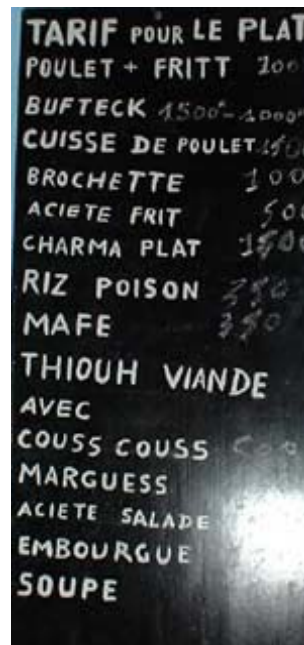 TARIF POUR LE PLAT
POULET + FRITT
BUFTECK 1500-1000
CUISSE DE POULET
BROCHETTE
ACIETE FRIT
CHARMA PLAT
RIZ POISON
MAFE
THIOUH VIANDE
AVEC
COUSS COUSS
MARGUESS
ACIETE SALADE
EMBOURGUE
SOUPE